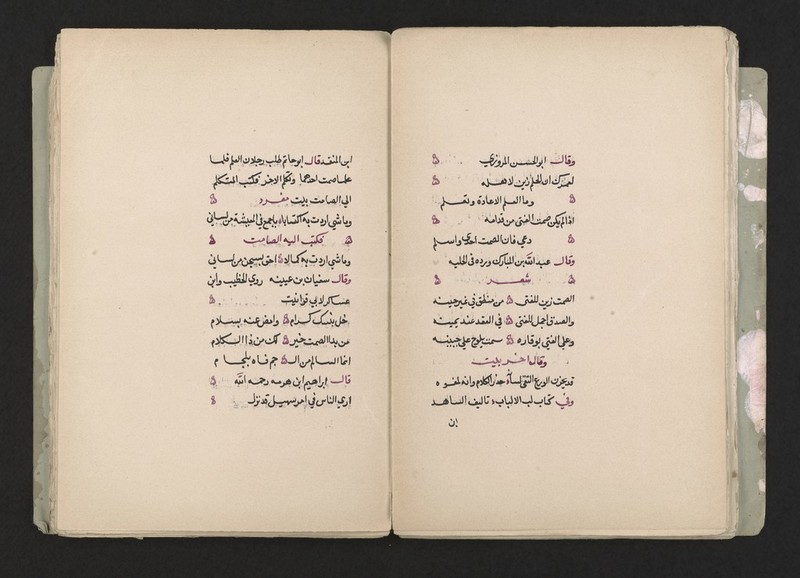 وقال ابو الحسن المروزي
لعمرك ان الحلم زين لاهله
وما العلم الاعادة وتعلم
اذا لم يكن صمت الفتى من ندامه
دعي فان الصمت احدى واسلم
وقال عبد الله بن المبارك ورده في الحليه
شعر
الصمت زين للفتى من منطق في غير حينه
والصدق اجمل للفتى في العقد عند يمينه
وعلى الفتى بوقاره سمت يلوح على جبينه
وقال اخر بيت
قد يخزن الورع التقى لسانه حذر الكلام وانه لمفوه
وفي كتاب لب الالباب تاليف الساهد
ابن
ابن المنقد قال ابو حاتم طلب رجلان العلم فلما
علما صمت احدهما وتكلم الاخر فكتب المتكلم
الي الصامت بيت مفرد
وما شي اردت به اكتسابا باجمع في المعيشة من لساني
فكتب اليه الصامت
وما شي اردت به كمالا احق بسجن من لساني
وقال سفيان بن عيينه روي الخطيب وابن
عساكر ادبي قوانيت
خل جنبيك كرام وامض عنه بسلام
من بدا الصمت خير لك من ذا الكلام
انما السالم من الجم فاه بلجام
قال ابراهيم ابن هرمه رحمه الله
اري الناس في امر سهيل قد نزل